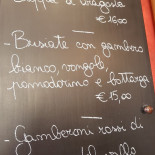 Zuppa d'aragosta
€ 16,00
- Busiate con gambero
bianco, vongole,
pomodorino e bottarga
€ 15,00
- Gamberoni rossi di